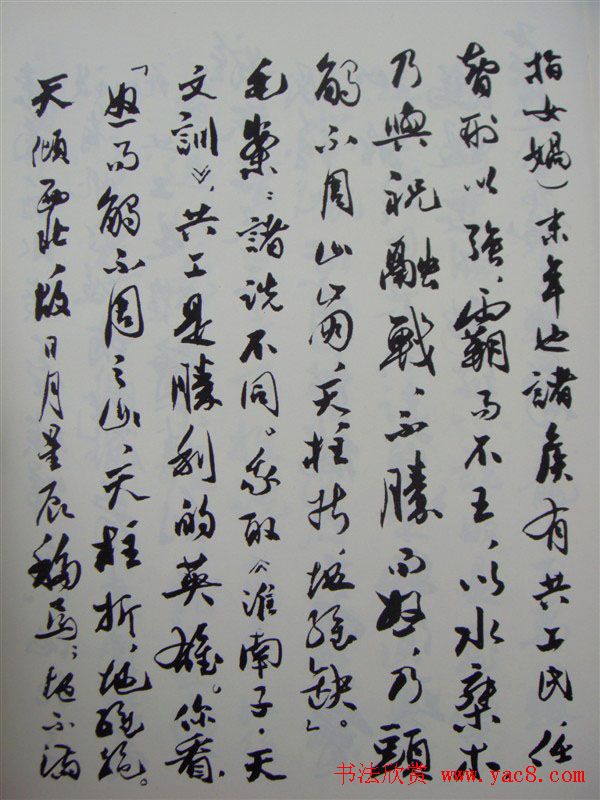 指女娲）末年也，诸侯有共工氏，任
智刑以强，霸而不王，以水乘木，
乃與祝融戰，不勝而怒，乃頭
觸不周山崩，天柱折，地維缺」。
毛案：諸说不同。我取《淮南子·天
文訓》，共工是勝利的英雄。你看，
「怒而觸不周之山，天柱折，地維絶。
天傾西北，故日月星辰移焉；地不滿
书法欣赏 www.yac8.com